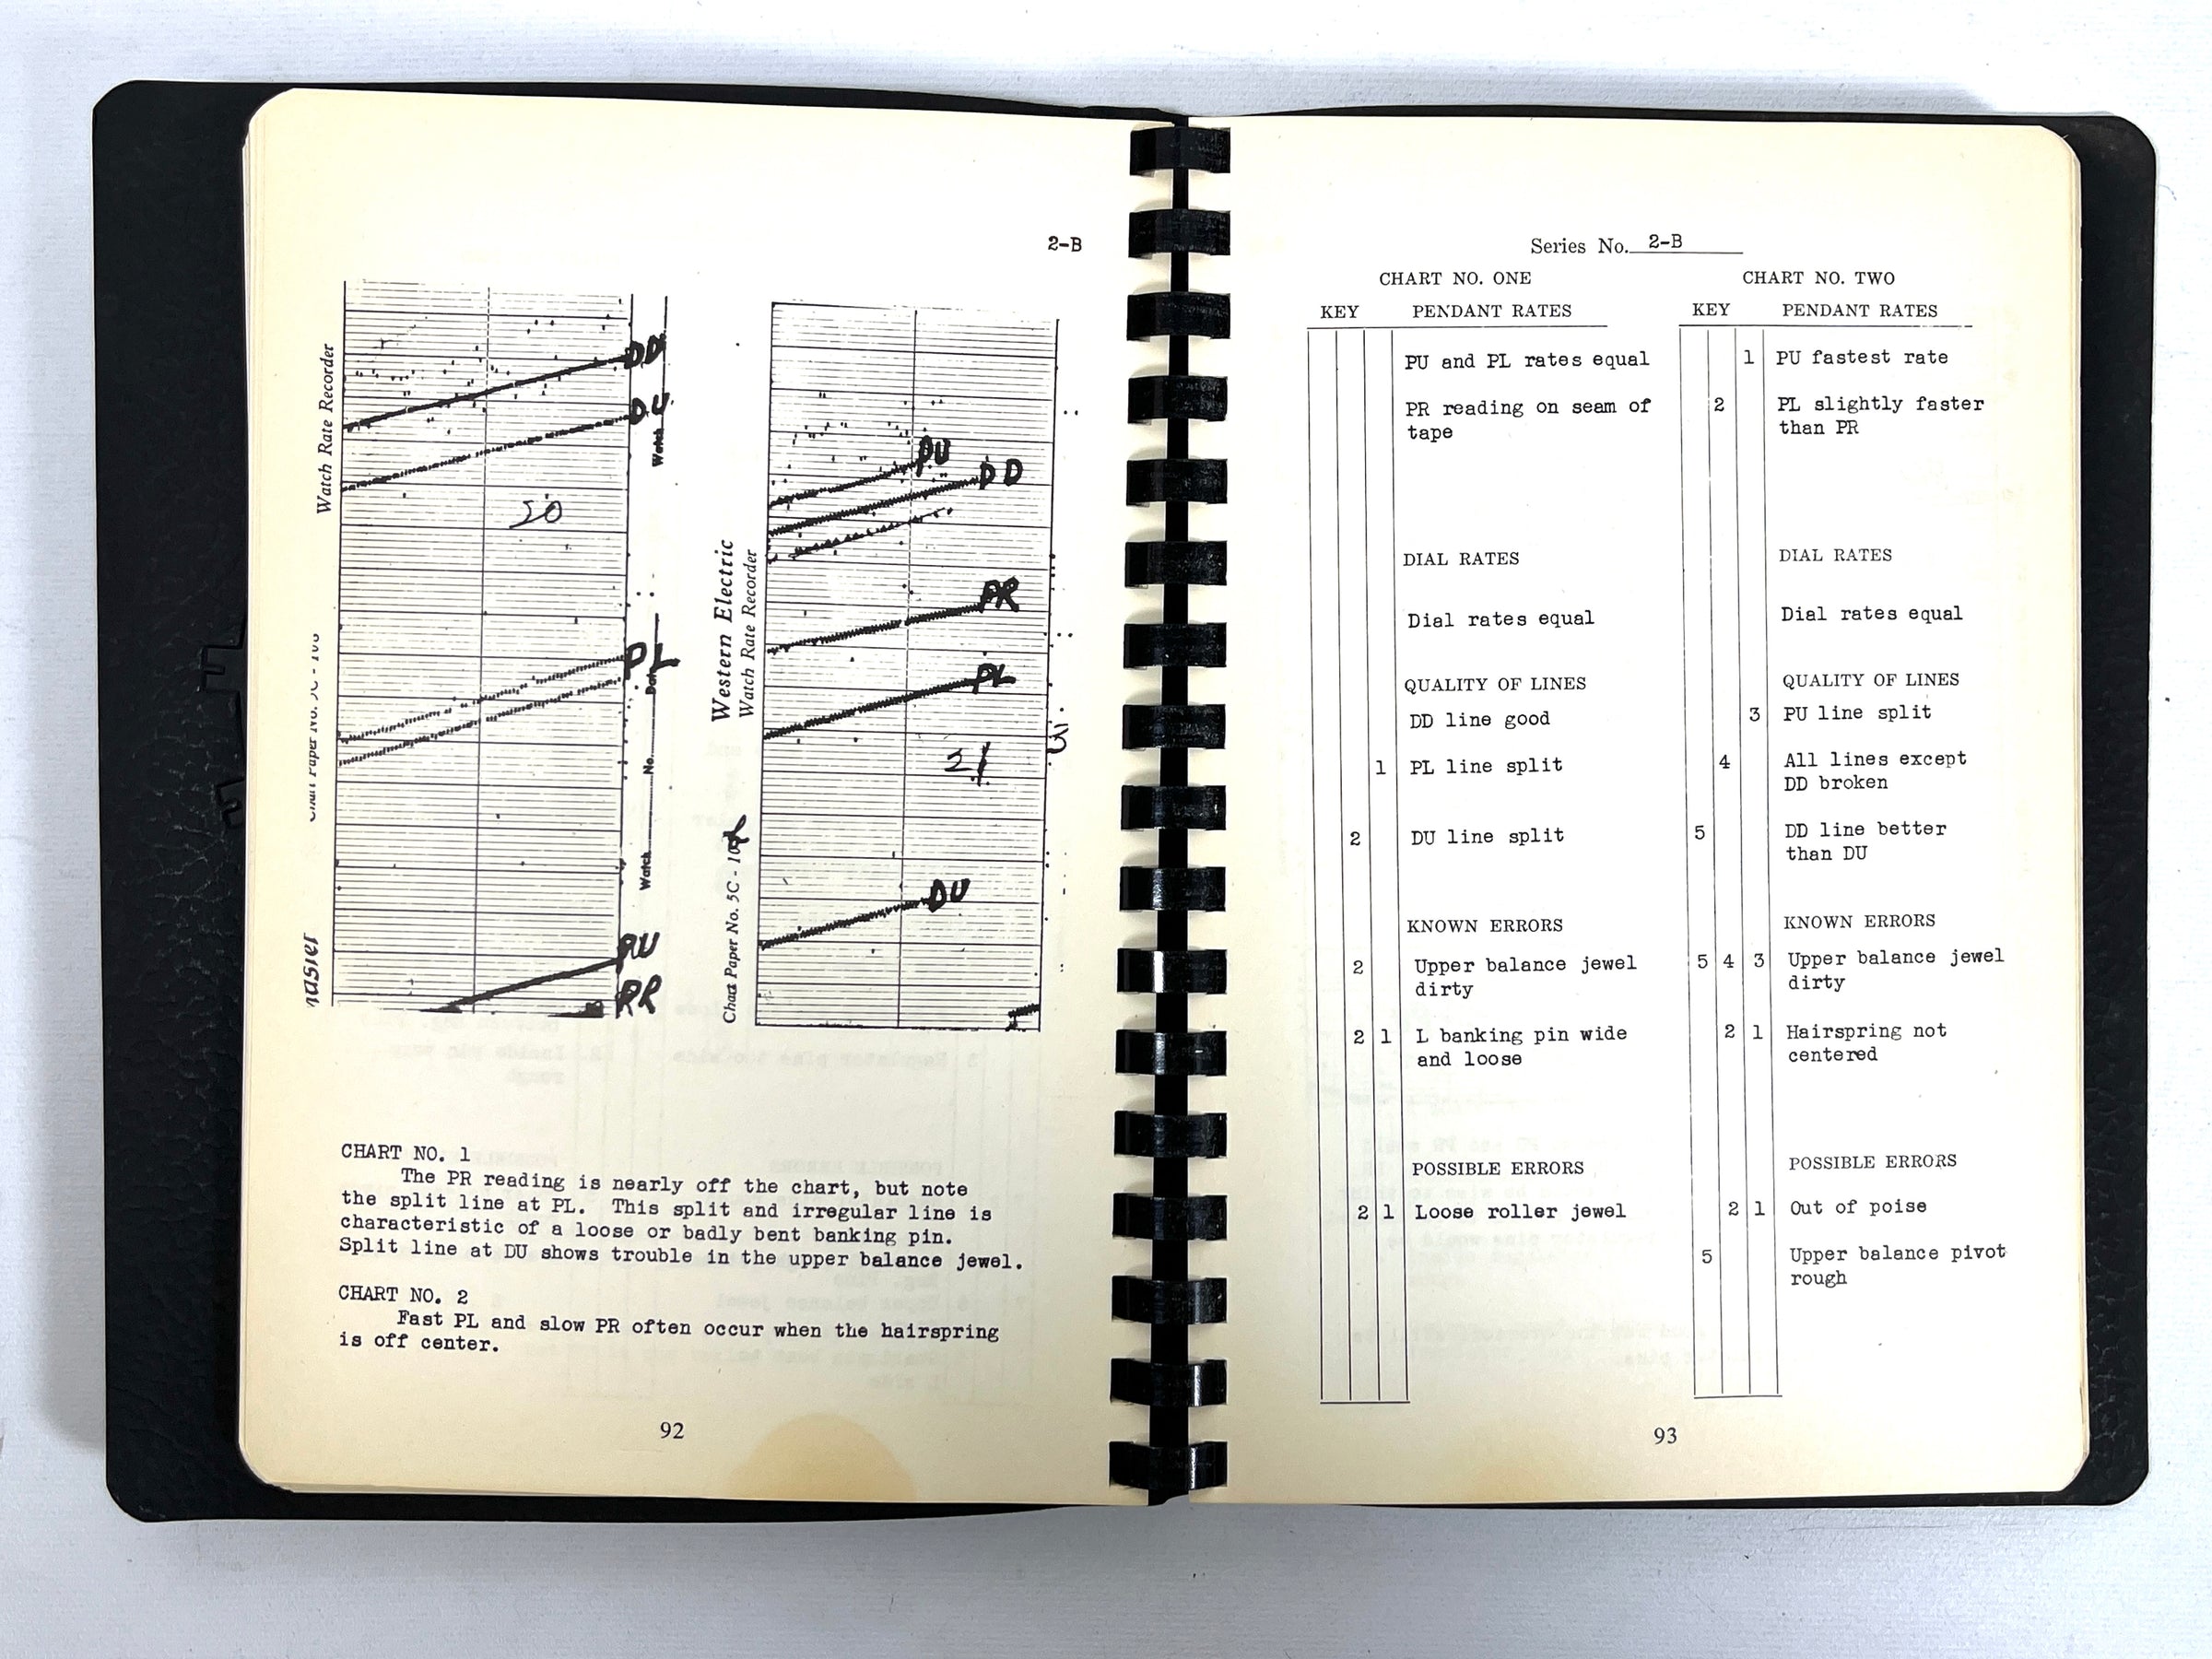 2-B
Watch Rate Recorder
DD
DU
Watch
20
PL
Date
No.
Watch
PU
PR
Western Electric
Watch Rate Recorder
Chart Paper No. 5C - 10
PU
DD
PR
PL
21
DU
CHART NO. 1
The PR reading is nearly off the chart, but note
the split line at PL. This split and irregular line is
characteristic of a loose or badly bent banking pin.
Split line at DU shows trouble in the upper balance jewel.
CHART NO. 2
Fast PL and slow PR often occur when the hairspring
is off center.
92
Series No. 2-B
CHART NO. ONE
KEY PENDANT RATES
PU and PL rates equal
PR reading on seam of
tape
DIAL RATES
Dial rates equal
QUALITY OF LINES
DD line good
1 PL line split
2 DU line split
KNOWN ERRORS
2 Upper balance jewel
dirty
2 1 L banking pin wide
and loose
POSSIBLE ERRORS
2 1 Loose roller jewel
CHART NO. TWO
KEY PENDANT RATES
1 PU fastest rate
2 PL slightly faster
than PR
DIAL RATES
Dial rates equal
QUALITY OF LINES
3 PU line split
4 All lines except
DD broken
5 DD line better
than DU
KNOWN ERRORS
5 4 3 Upper balance jewel
dirty
2 1 Hairspring not
centered
POSSIBLE ERRORS
2 1 Out of poise
5 Upper balance pivot
rough
93